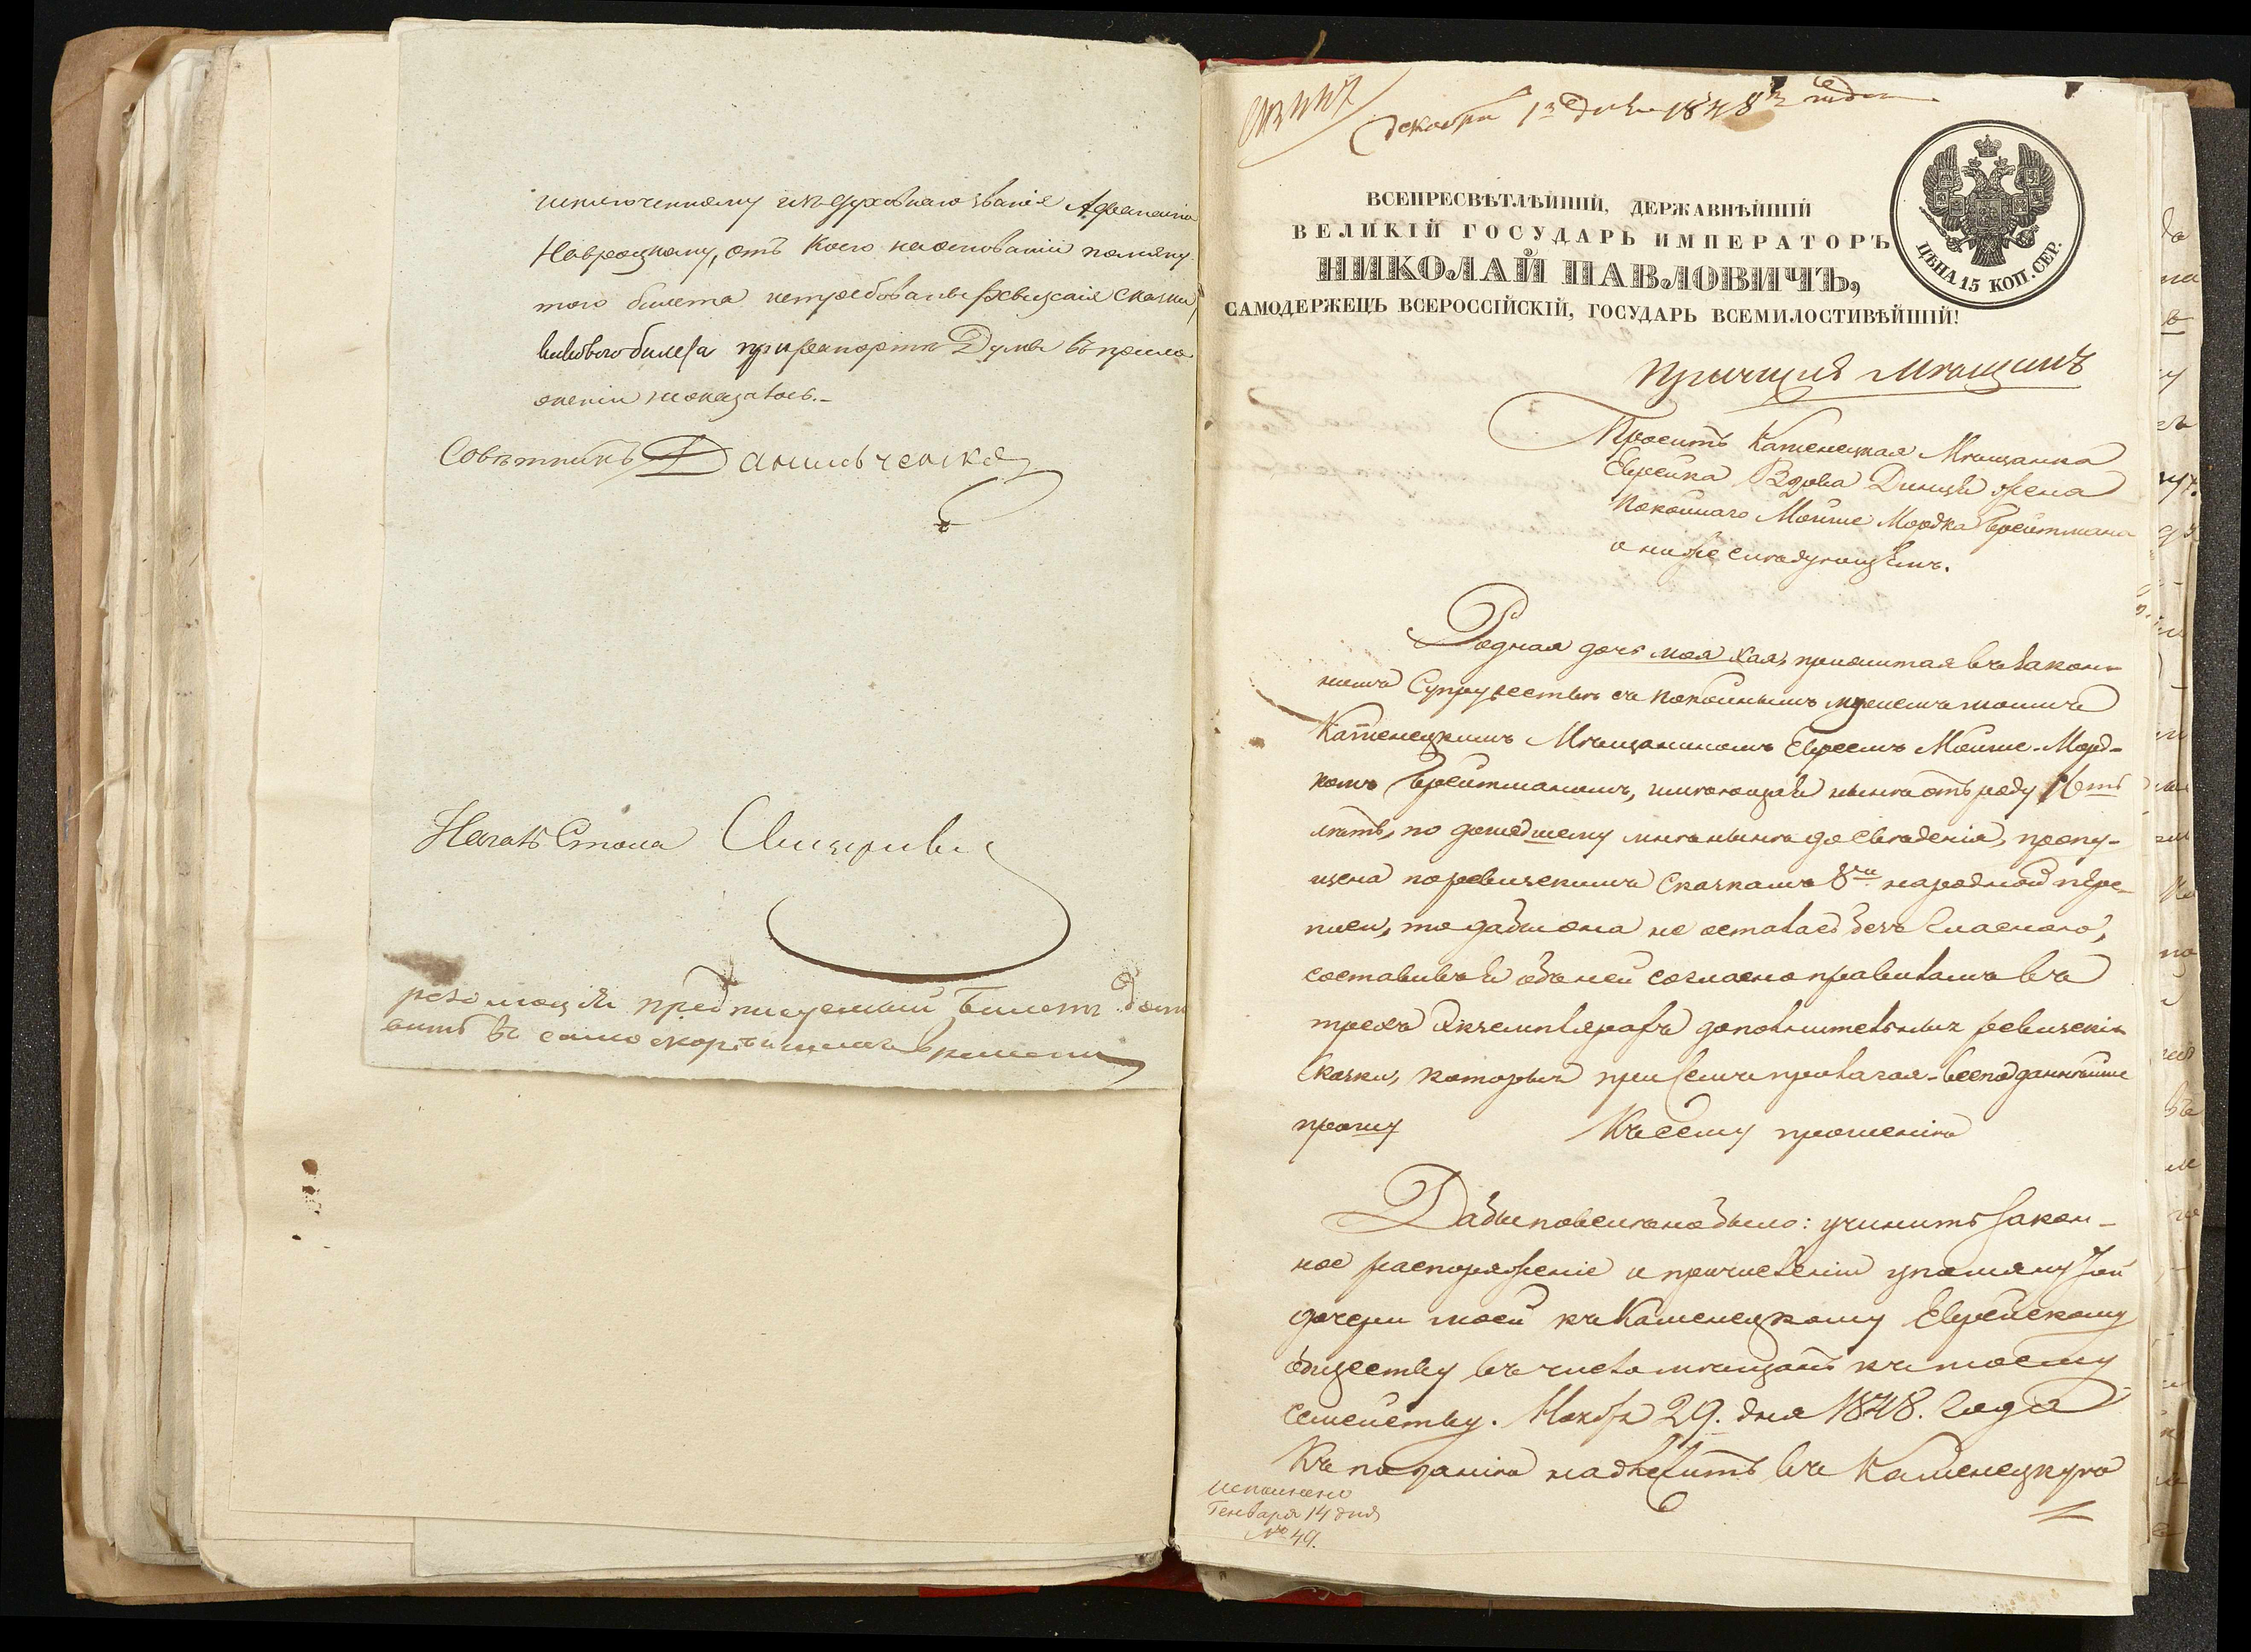 исключенному изъ духовнаго званія Афанасію
Навроцкому, отъ коего на основаніи помяну
того билета истребованы ревизскія сказки,
каковаго билета при рапортѣ Думы въ прило
женіи не оказалось.-
Совѣтникъ Данильченко
Начал: Стола
резолюція предписуемый билетъ доста
вить въ самоскорѣйшемъ времени
декабря 1го дня 1848го года
ВСЕПРЕСВѢТЛѢЙШІЙ, ДЕРЖАВНѢЙШІЙ
ВЕЛИКІЙ ГОСУДАРЬ ИМПЕРАТОРЪ
НИКОЛАЙ ПАВЛОВИЧЪ,
САМОДЕРЖЕЦЪ ВСЕРОССІЙСКІЙ, ГОСУДАРЬ ВСЕМИЛОСТИВѢЙШІЙ!
ЦѢНА 15 КОП. СЕР.
Проситъ Каменецкая Мѣщанка
Еврейка Вдова жена
покойнаго Мойше Мордка Бройтмана
о нижеслѣдующемъ.
Родная дочь моя Хая, прижитая въ закон-
номъ супружествѣ съ покойнымъ мужемъ моимъ
Каменецкимъ Мѣщаниномъ Евреемъ Мойше-Морд-
комъ Бройтманомъ, имѣющая нынѣ отъ роду 16ть
лѣтъ, по дошедшему мнѣ нынѣ до свѣденія, пропу-
щена по ревизскимъ сказкамъ 8й народной пере-
писи, то дабы она не осталась безъ гласною,
составивъ объ ней согласно правиламъ въ
трехъ экземплярахъ дополнительныя ревизскія
сказки, которыя при семъ прилагая - всеподданнѣйше
прошу Къ сему прошенію
Дабы повелѣно было: учинить закон-
ное распоряженіе о причисленіи упомянутой
дочери моей къ Каменецкому Еврейскому
обществу въ число мѣщанъ къ моему
семейству. Ноября 29. дня 1848. года
Къ поданію надлежитъ въ Каменецкую
исполнено
Генваря 14 дня
№ 49.